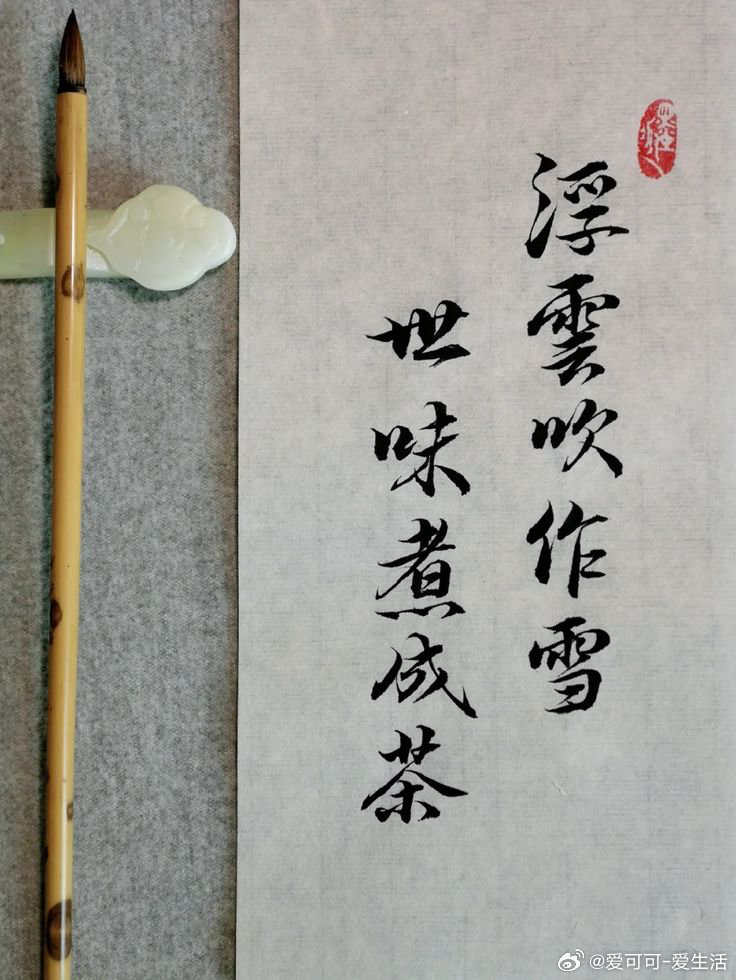 浮雲吹作雪
世味煮成茶
@爱可可-爱生活